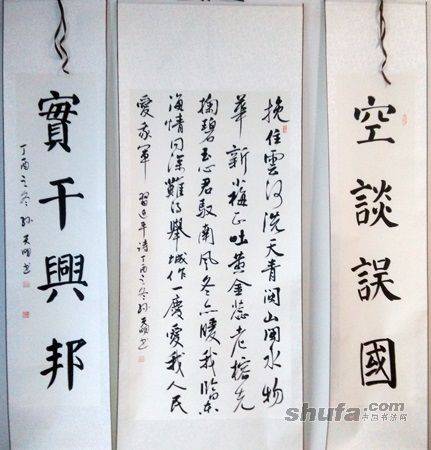 空談誤國
挽住雲河洗天青閩山閩水物
華新小梅正吐黃金蕊老榕先
掬碧玉心君馭南風冬亦暖我臨东
海情同深難得舉城作一慶愛我人民
愛我軍 習近平詩丁酉之冬孙
實干興邦
丁酉之冬孙
shufa.com
中国书法网